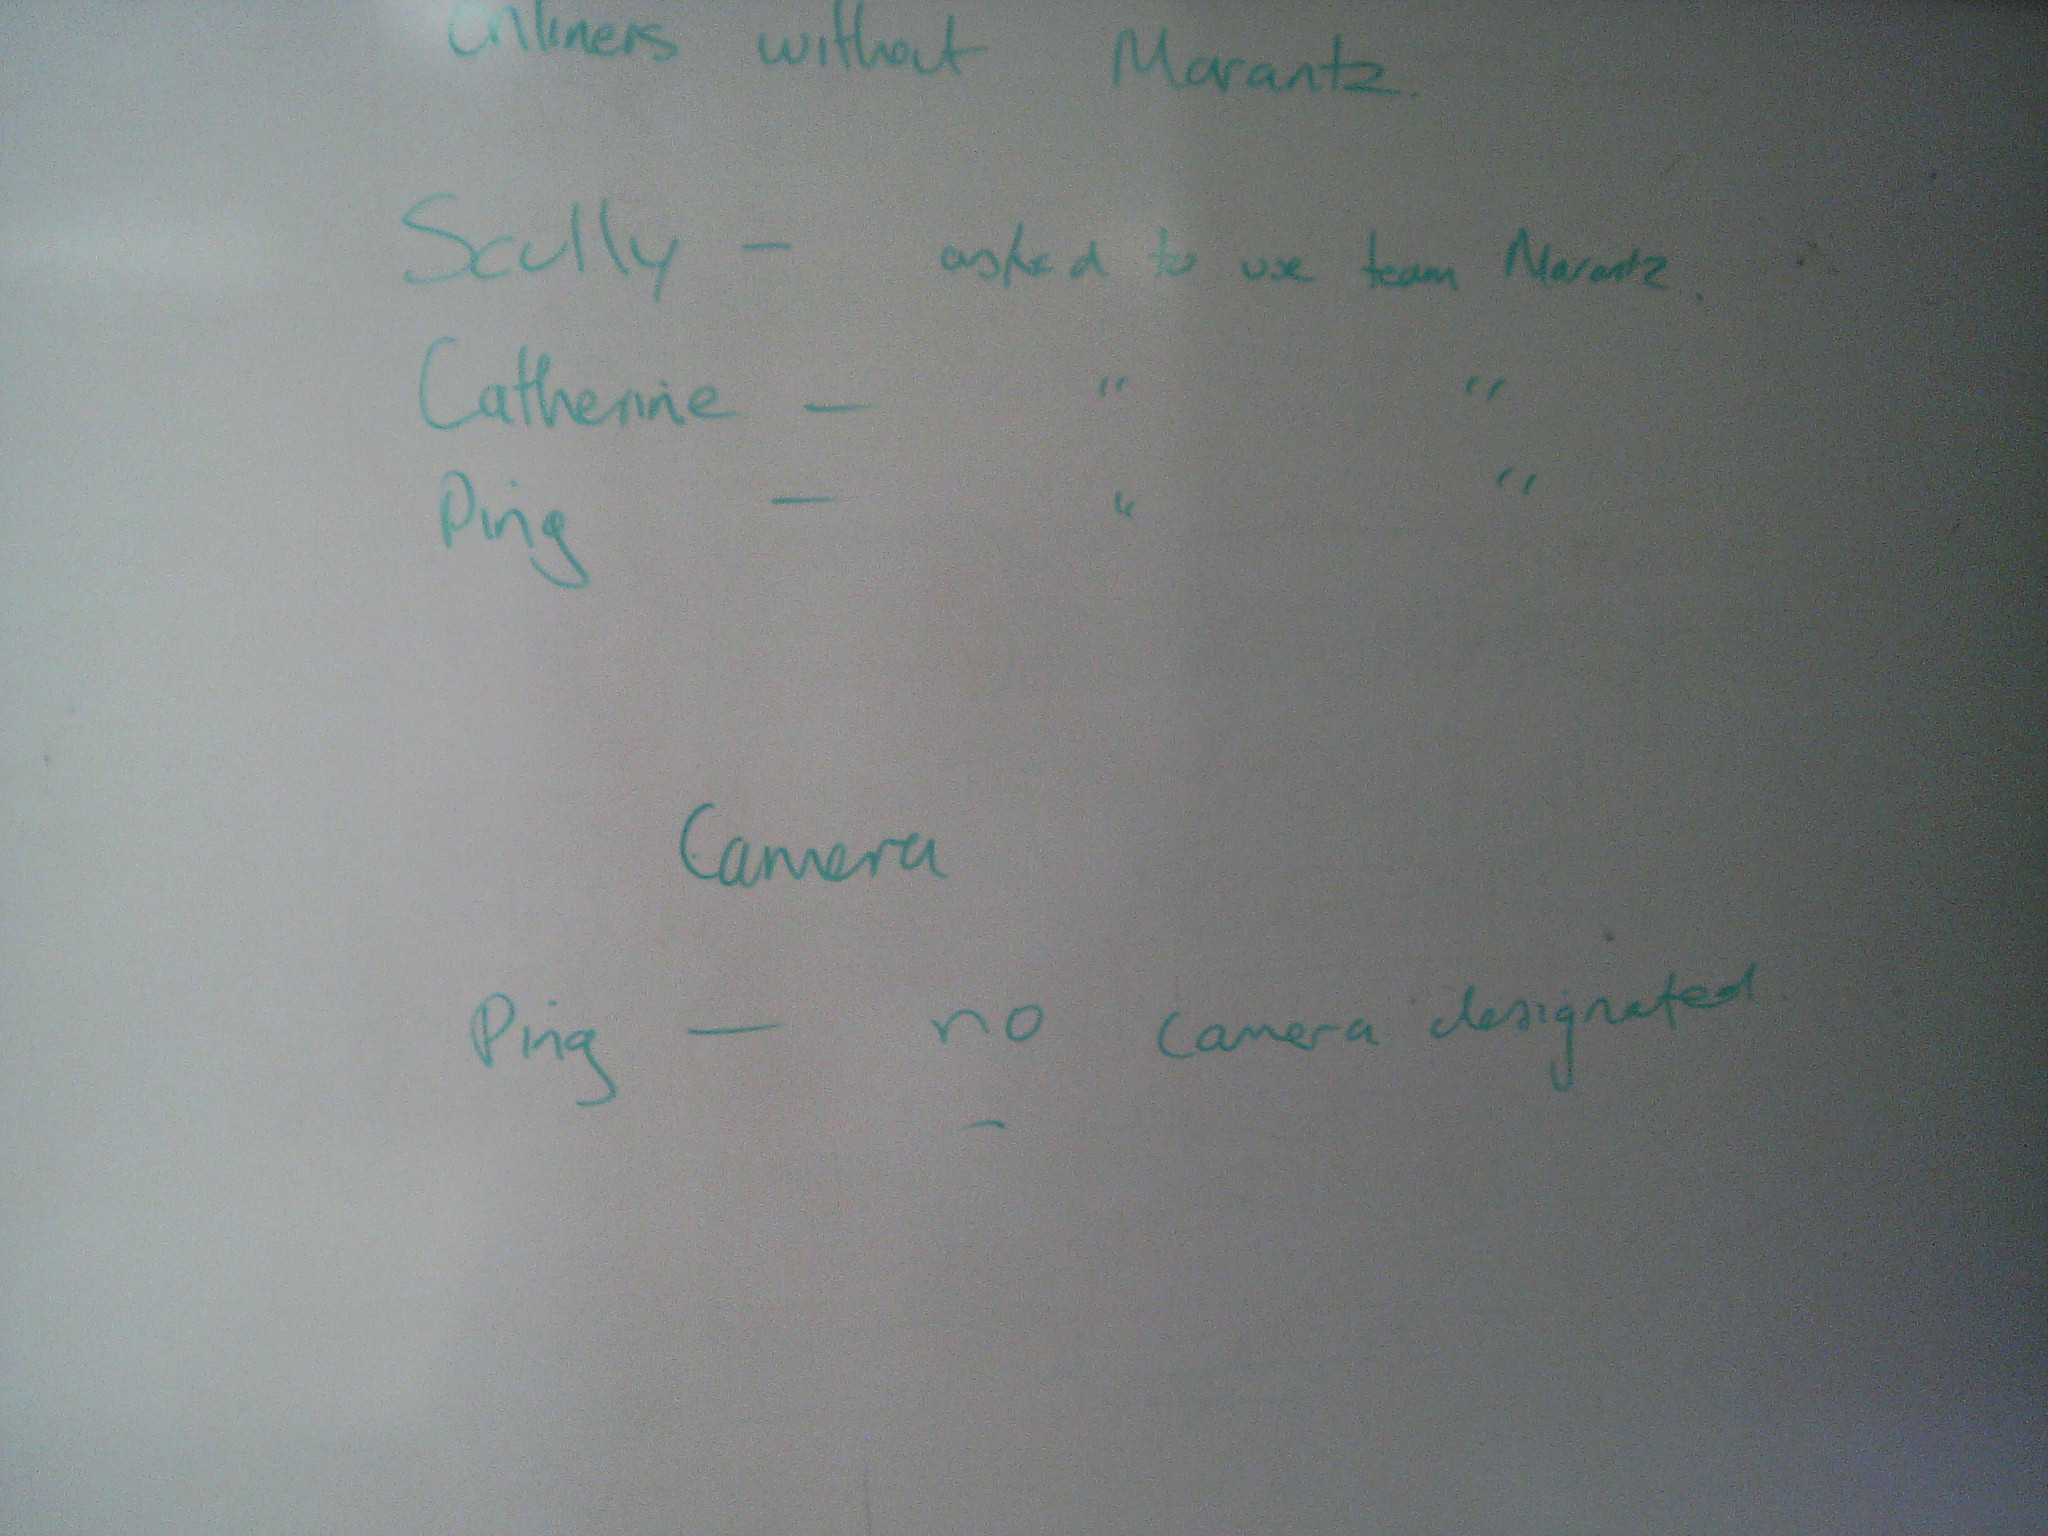 without Marantz.
Scully - asked to use team Marantz.
Catherine - " "
Ping - " "
Camera
Ping - no camera designated.
-